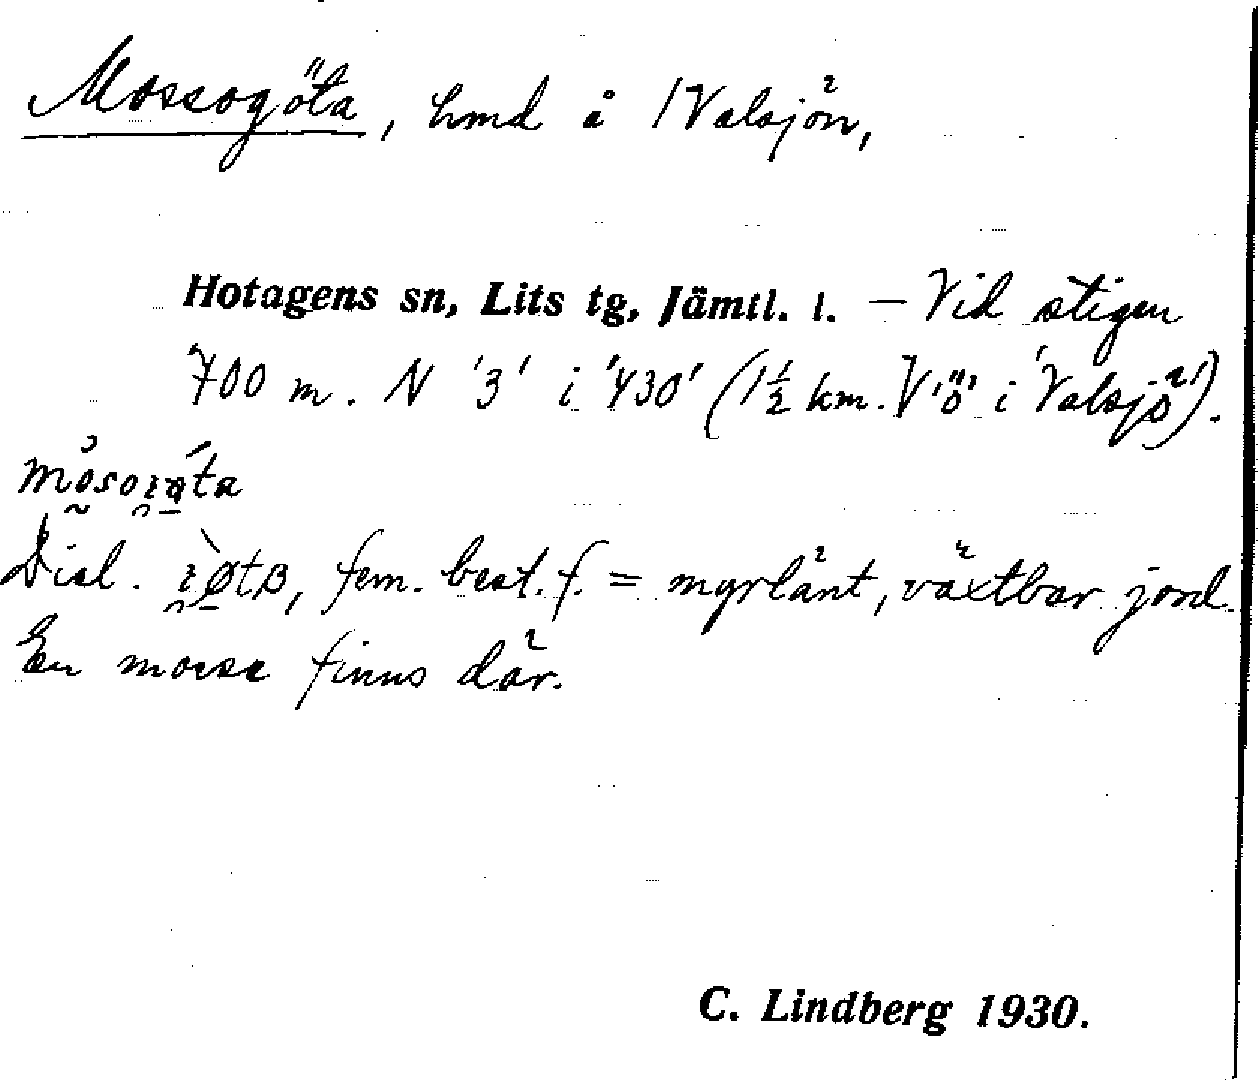 Mossogöta, hmd å 1 Valsjön,
Hotagens sn, Lits tg, Jämtl. l. — Vid stigen
700 m. N '3' i '430' (1½ km. V 'ö' i 'Valsjö').
Dial. fem. best. f. = myrlänt, växtbar jord.
En mosse finns där.
C. Lindberg 1930.